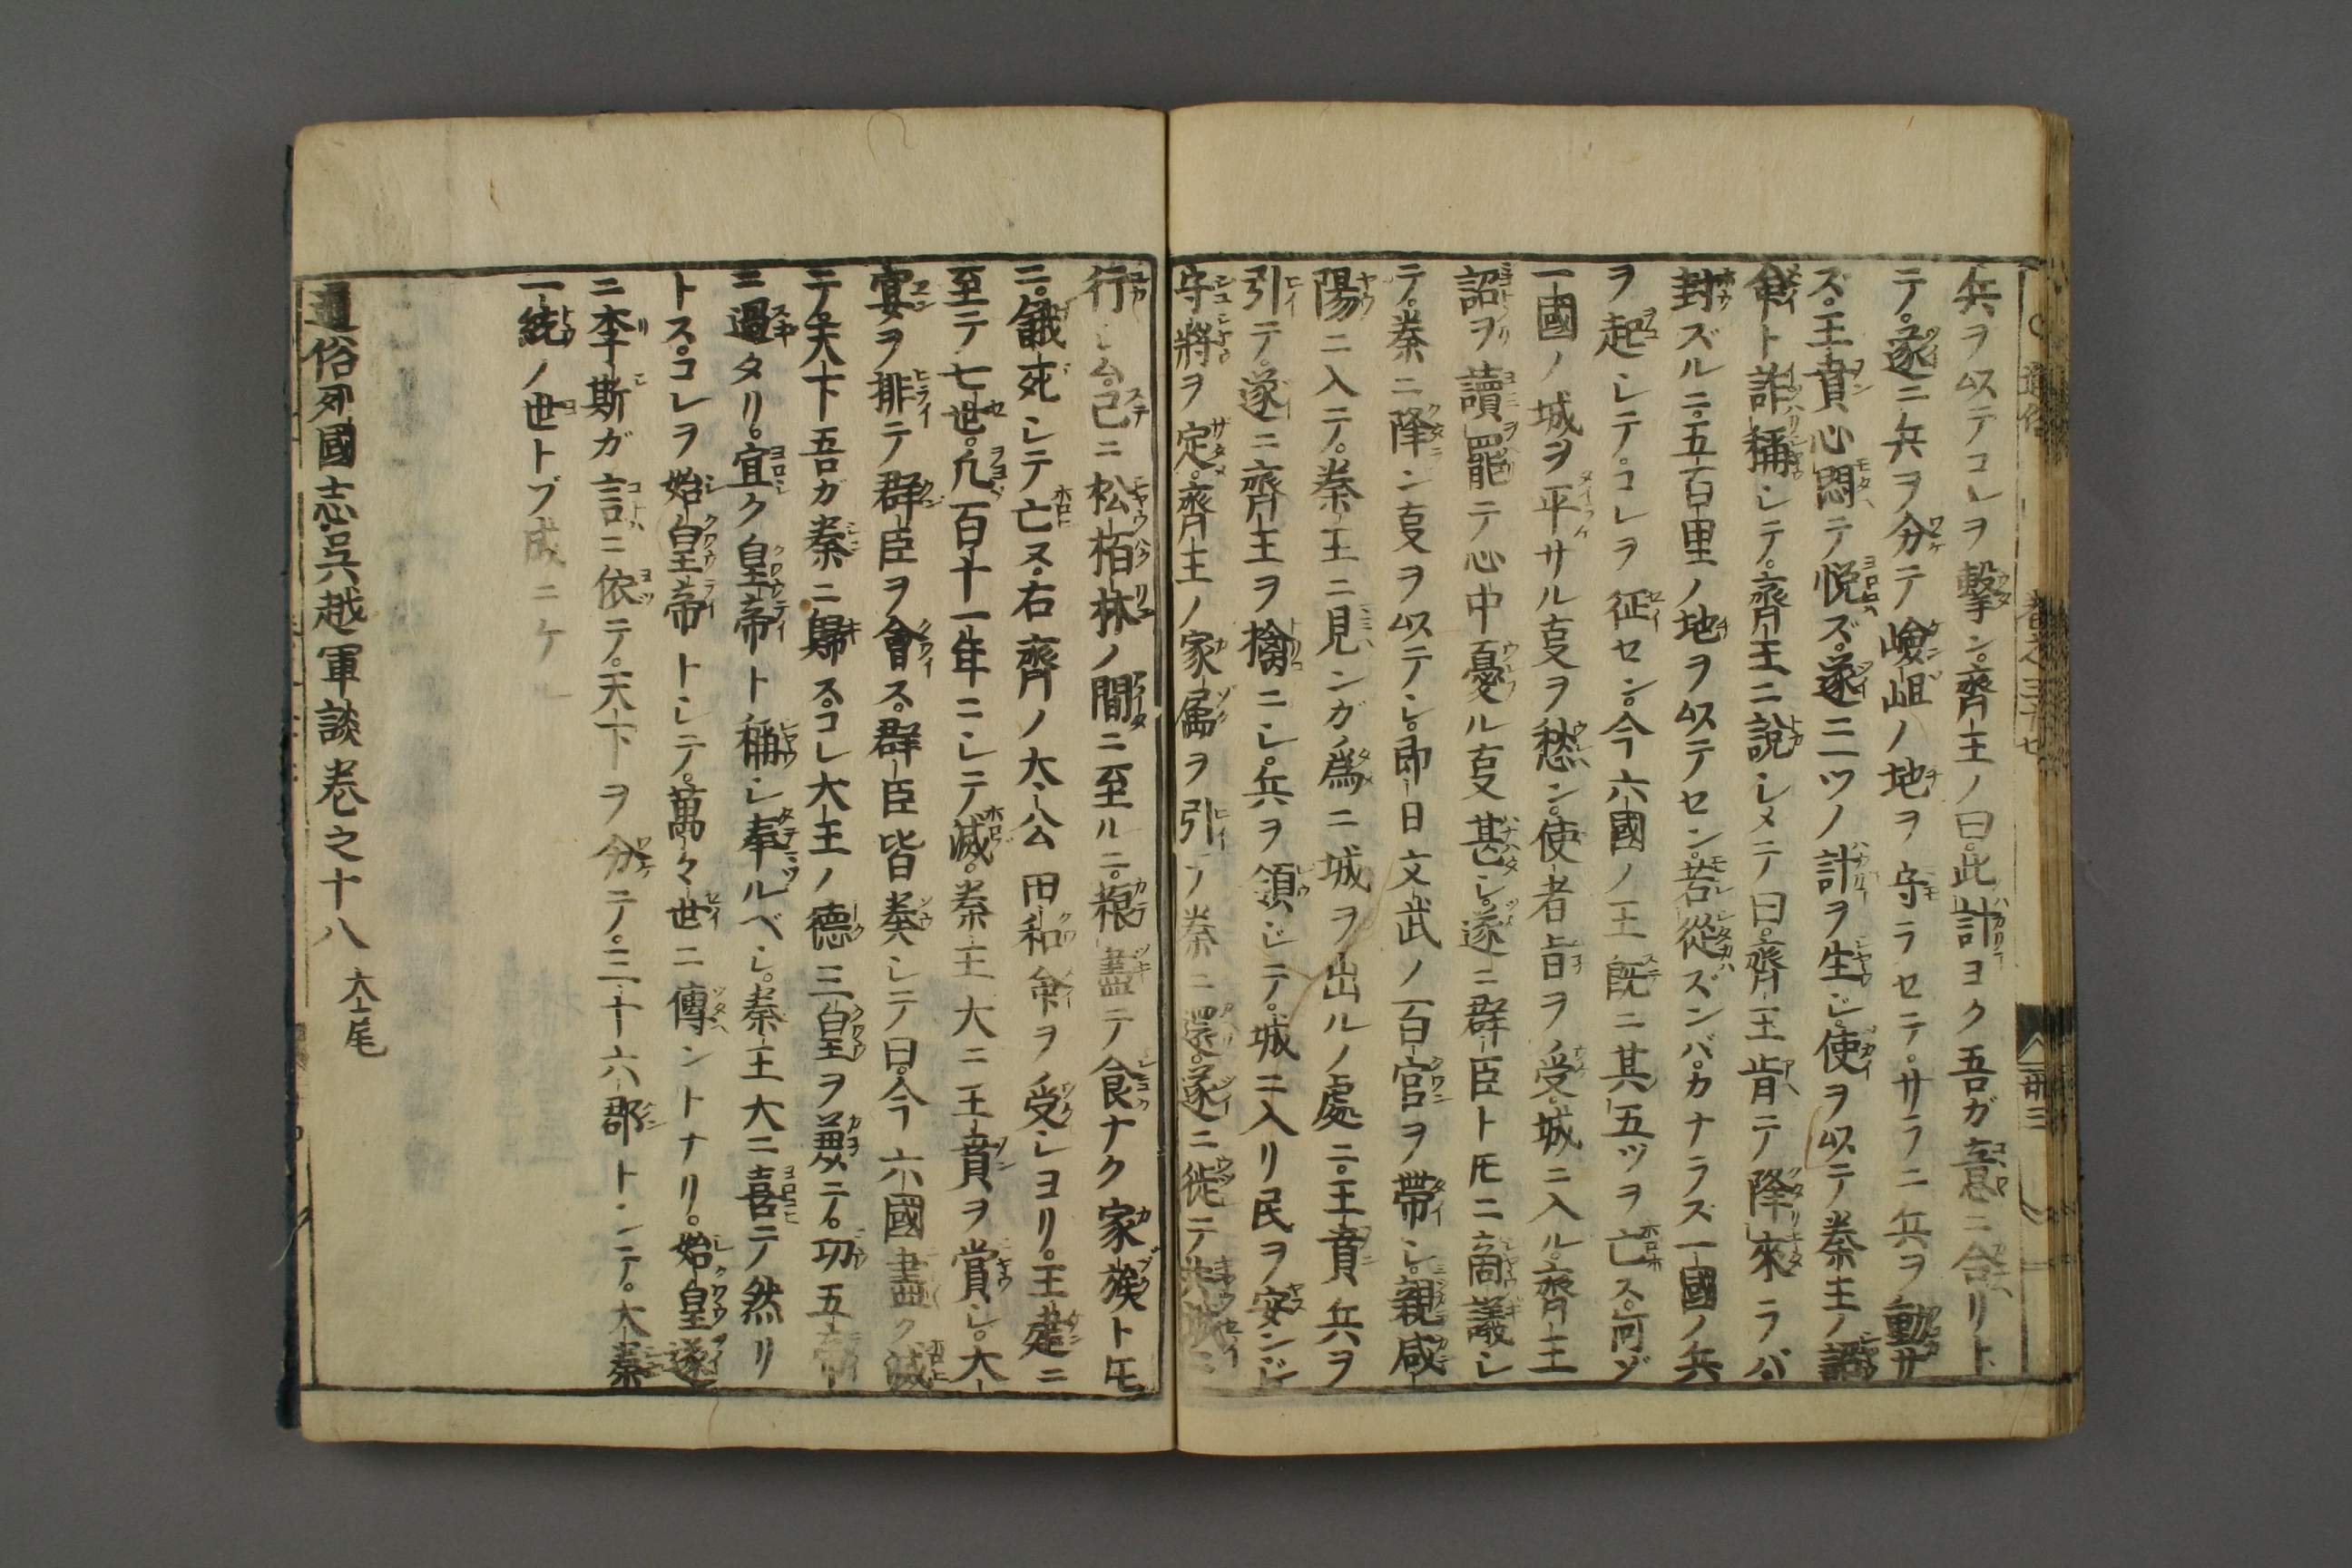 兵ヲ以テコレヲ撃ン。齊王ノ曰。此計ヨク吾ガ意ニ合リト
テ。遂ニ兵ヲ分テ嶮岨ノ地ヲ守ラセテ。サラニ兵ヲ動サ
ズ。王賁心悶テ悦ズ。遂ニ一ツノ計ヲ生ジ。使ヲ以テ秦王ノ詔
命ト詐稱シテ。齊王ニ說シメテ曰。齊王肯テ降來ラバ
封ズルニ。五百里ノ地ヲ以テセン。若從ズンバ。カナラズ一國ノ兵
ヲ起シテ。コレヲ征セン。今六國ノ王既ニ其五ツヲ亡ス。何ゾ
一國ノ城ヲ平サル叓ヲ愁ン。使者旨ヲ受。城ニ入ル。齊王
詔ヲ讀罷テ心中憂ル叓甚シ。遂ニ群臣ト𪜈ニ商議シ
テ。秦ニ降ン叓ヲ以テシ。即日文武ノ百官ヲ帶シ。親咸
陽ニ入テ。秦王ニ見ンガ爲ニ城ヲ出ルノ處ニ。王賁兵ヲ
引テ。遂ニ齊王ヲ擒ニシ。兵ヲ領ジテ。城ニ入リ民ヲ安ンジ
守將ヲ定。齊王ノ家属ヲ引テ秦ニ還。遂ニ徙テ共城ニ
行シム。已ニ松栢林ノ間ニ至ルニ。粮盡テ食ナク家族ト𪜈
ニ。餓死シテ亡ス。右齊ノ太公田和命ヲ受シヨリ。王建ニ
至テ七世。凢百十一年ニシテ滅。秦王大ニ王賁ヲ賞シ。大
宴ヲ排テ群臣ヲ會ス。群臣皆奏シテ曰。今六國盡ク滅
テ。天下吾ガ秦ニ歸ス。コレ大王ノ德三皇ヲ兼テ。功五帝
ニ過タリ。宜ク皇帝ト稱シ奉ルベシ。秦王大ニ喜テ然リ
トス。コレヲ始皇帝トシテ。萬々世ニ傳ントナリ。始皇遂
ニ李斯ガ言ニ依テ。天下ヲ分テ。三十六郡トシテ。大秦
一統ノ世トゾ成ニケル
通俗列國志呉越軍談卷之十八 大尾